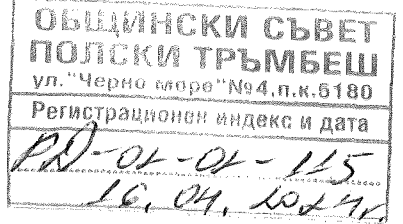 ОБЩИНСКИ СЪВЕТ
ПОЛСКИ ТРЪМБЕШ
ул."Черно море"№4,п.к.5180
Регистрационен индекс и дата
РД-01-01-115
16.04.2024г.